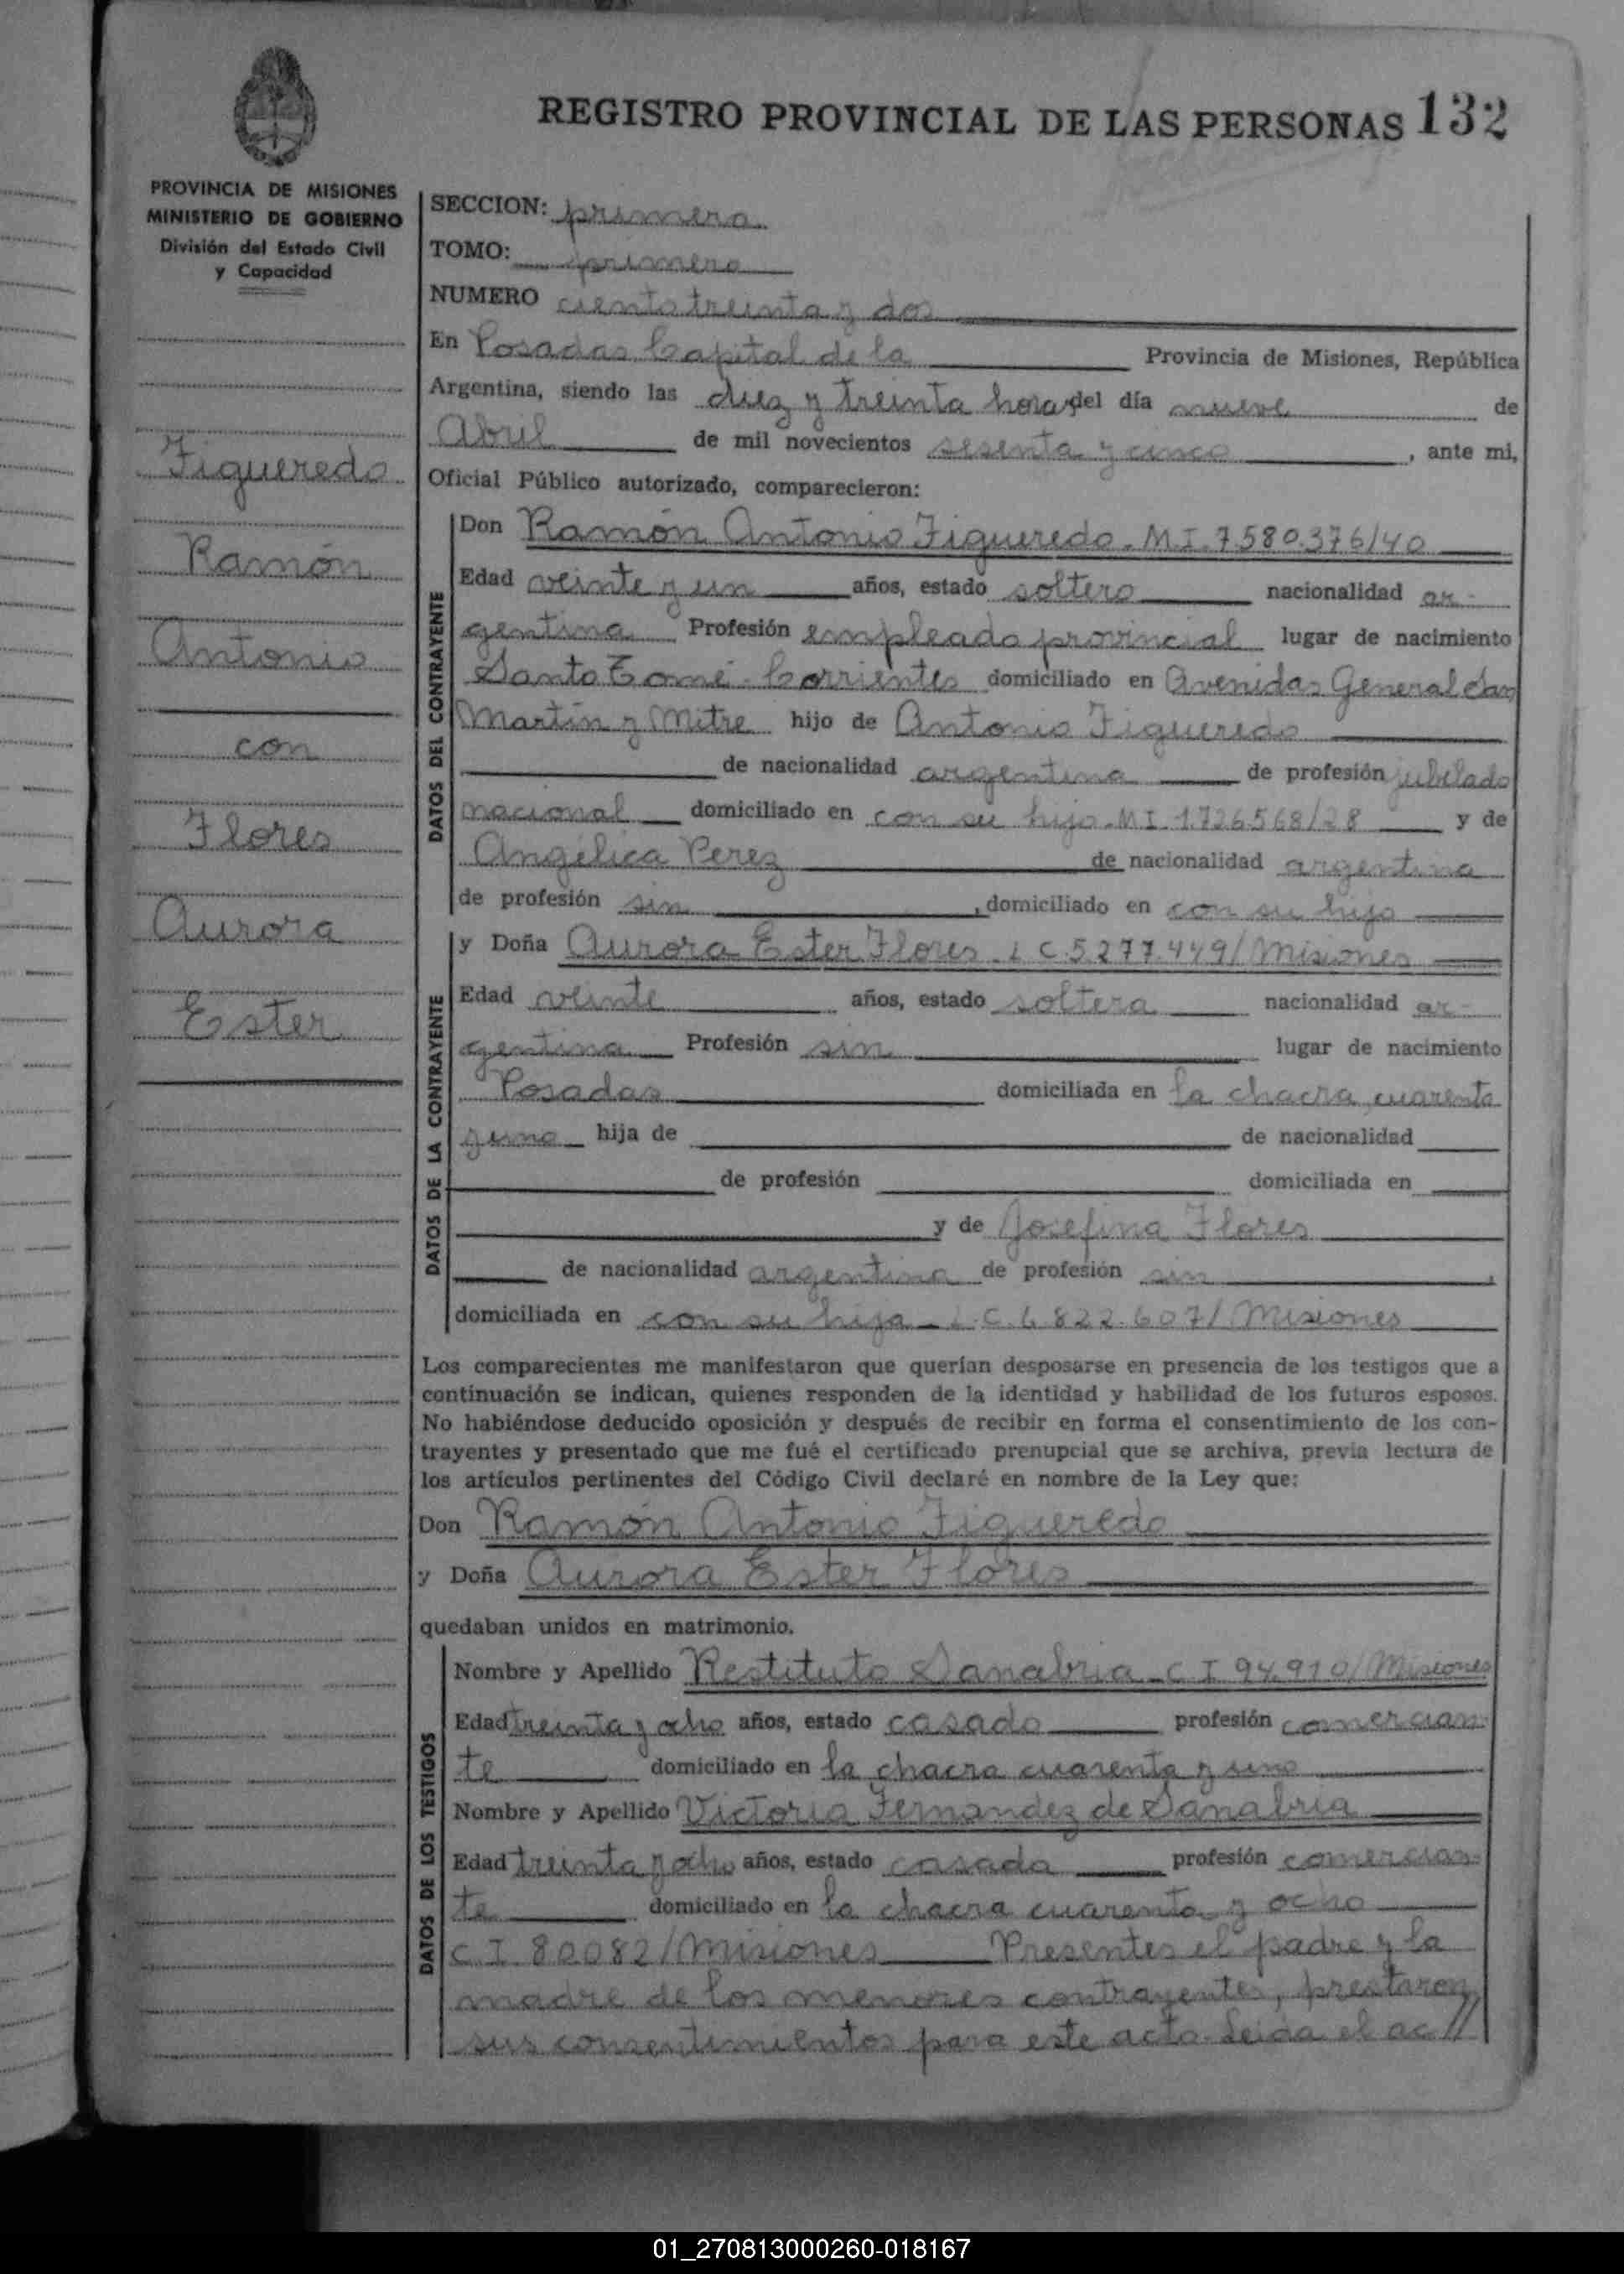 REGISTRO PROVINCIAL DE LAS PERSONAS 132
PROVINCIA DE MISIONES
MINISTERIO DE GOBIERNO
División del Estado Civil
y Capacidad
Figueredo
Ramón
Antonio
con
Flores
Aurora
Ester
SECCION: primera
TOMO: primero
NUMERO ciento treinta y dos
En Posadas Capital de la Provincia de Misiones, República
Argentina, siendo las diez y treinta horas del día nueve de
Abril de mil novecientos sesenta y cinco, ante mi,
Oficial Público autorizado, comparecieron:
DATOS DEL CONTRAYENTE
Don Ramón Antonio Figueredo - M.I. 7.580.376/40
Edad veinte y un años, estado soltero nacionalidad ar-
gentina Profesión empleado provincial lugar de nacimiento
Santo Tomé - Corrientes domiciliado en Avenidas General San
Martín y Mitre hijo de Antonio Figueredo
de nacionalidad argentina de profesión jubilado
nacional domiciliado en con su hijo - M.I. 1726568/28 y de
Angélica Perez de nacionalidad argentina
de profesión sin, domiciliado en con su hijo
DATOS DE LA CONTRAYENTE
y Doña Aurora Ester Flores - L.C. 5.277.449/Misiones
Edad veinte años, estado soltera nacionalidad ar-
gentina Profesión sin lugar de nacimiento
Posadas domiciliada en la chacra cuarenta
y uno hija de de nacionalidad
de profesión domiciliada en
y de Josefina Flores
de nacionalidad argentina de profesión sin,
domiciliada en con su hija - L.C. 6.822.607/Misiones
Los comparecientes me manifestaron que querían desposarse en presencia de los testigos que a
continuación se indican, quienes responden de la identidad y habilidad de los futuros esposos.
No habiéndose deducido oposición y después de recibir en forma el consentimiento de los con-
trayentes y presentado que me fué el certificado prenupcial que se archiva, previa lectura de
los artículos pertinentes del Código Civil declaré en nombre de la Ley que:
Don Ramón Antonio Figueredo
y Doña Aurora Ester Flores
quedaban unidos en matrimonio.
DATOS DE LOS TESTIGOS
Nombre y Apellido Restituto Sanabria - C.I. 94.910/Misiones
Edad treinta y ocho años, estado casado profesión comercian-
te domiciliado en la chacra cuarenta y uno
Nombre y Apellido Victoria Fernandez de Sanabria
Edad treinta y ocho años, estado casada profesión comercian-
te domiciliado en la chacra cuarenta y ocho
C.I. 80082/Misiones Presentes el padre y la
madre de los menores contrayentes, prestaron
sus consentimientos para este acto. Leida el ac//
01_270813000260-018167